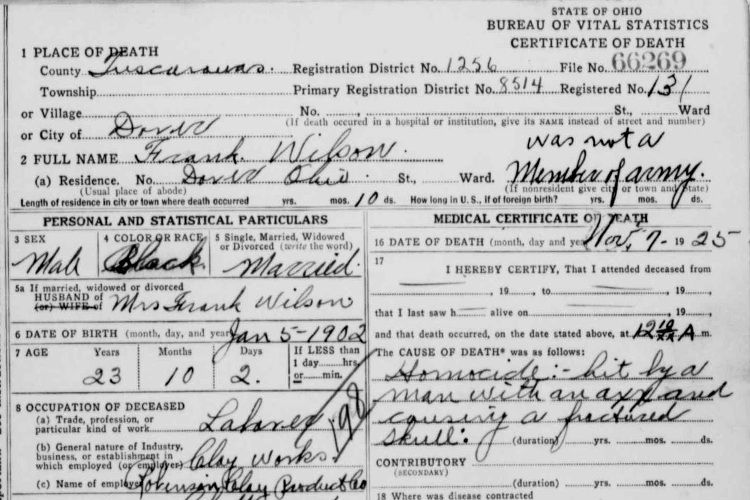 STATE OF OHIO
BUREAU OF VITAL STATISTICS
CERTIFICATE OF DEATH
1 PLACE OF DEATH
County Tuscarawas. Registration District No. 1256 File No. 66269
Township Primary Registration District No. 8514 Registered No. 131
or Village No. , St., Ward
(If death occured in a hospital or institution, give its NAME instead of street and number)
or City of Dover
was not a
2 FULL NAME Frank Wilson.
Member of army.
(a) Residence. No. Dover Ohio St., Ward.
(Usual place of abode) (If nonresident give city or town and State)
Length of residence in city or town where death occurred yrs. mos. 10 ds. How long in U.S., if of foreign birth? yrs. mos. ds.
PERSONAL AND STATISTICAL PARTICULARS
3 SEX 4 COLOR OR RACE 5 Single, Married, Widowed
or Divorced (write the word)
Male Black Married.
5a If married, widowed or divorced
HUSBAND of
(or) WIFE of Mrs Frank Wilson
6 DATE OF BIRTH (month, day, and year) Jan 5-1902
7 AGE Years Months Days If LESS than
1 day, hrs.
or min.
23 10 2.
8 OCCUPATION OF DECEASED
(a) Trade, profession, or
particular kind of work Laborer
198
(b) General nature of Industry,
business, or establishment in
which employed (or employer) Clay Works.
(c) Name of employer Robinson Clay Product Co
MEDICAL CERTIFICATE OF DEATH
16 DATE OF DEATH (month, day and year) Nov. 7- 1925
17
I HEREBY CERTIFY, That I attended deceased from
, 19 , to , 19 ,
that I last saw h alive on , 19 ,
and that death occurred, on the date stated above, at 12 A m.
The CAUSE OF DEATH* was as follows:
Homocide:- hit by a
man with an axe and
causing a fractured
skull:
(duration) yrs. mos. ds.
CONTRIBUTORY
(SECONDARY)
(duration) yrs. mos. ds.
18 Where was disease contracted